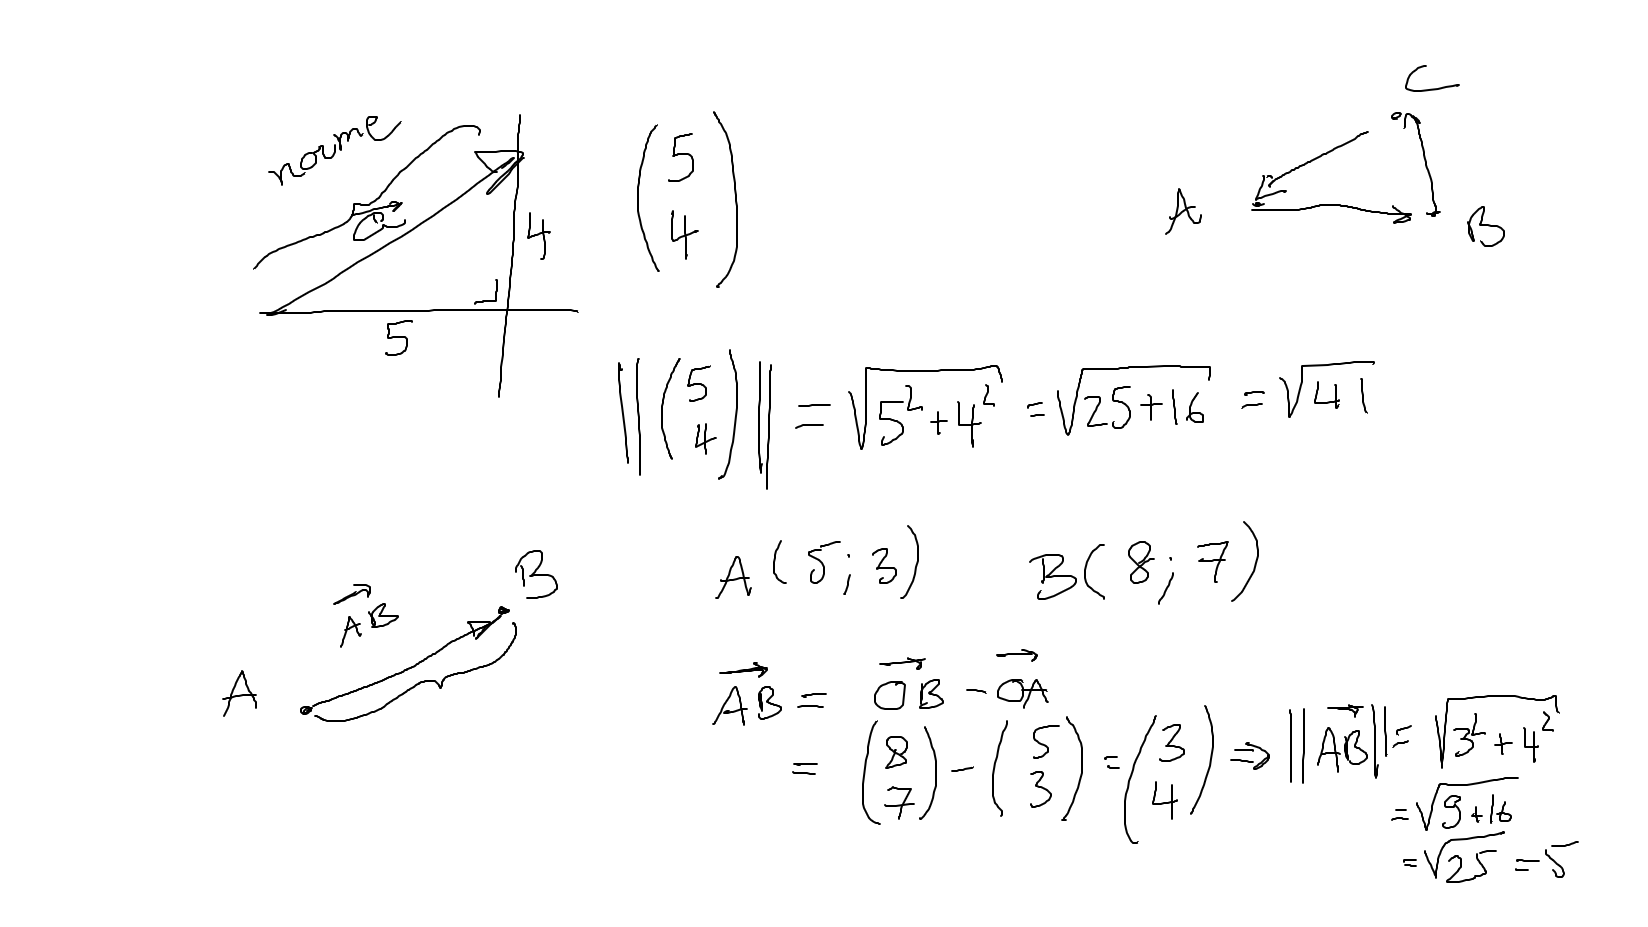 norme
a⃗
4
5
(5
4)
C
A
B
||(5
4)|| = √(5² + 4²) = √(25+16) = √41
A(5;3) B(8;7)
AB⃗
A
B
AB⃗ = OB⃗ - OA⃗
= (8
7) - (5
3) = (3
4) ⇒ ||AB⃗|| = √(3² + 4²)
= √(9+16)
= √25 = 5